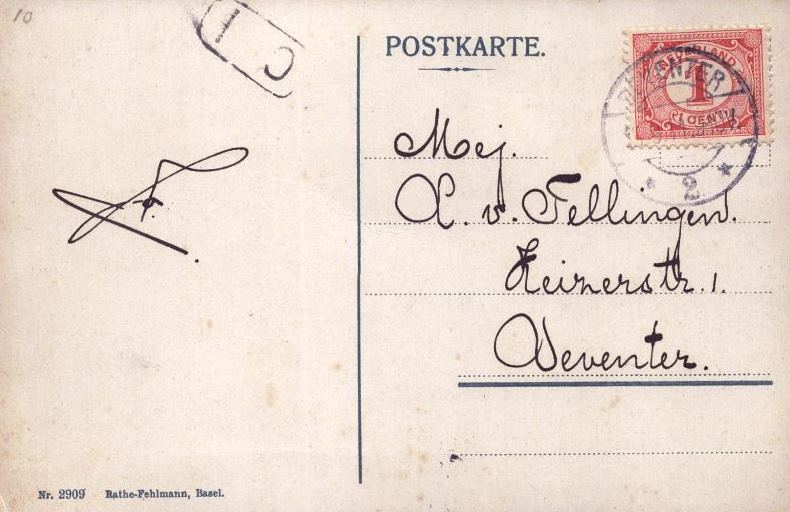 10
C I
POSTKARTE.
NEDERLAND
1
1 CENT
ENTER
2
Mej.
A. v. Tellingen.
Keizerstr. 1.
Deventer.
Nr. 2909 Rathe-Fehlmann, Basel.